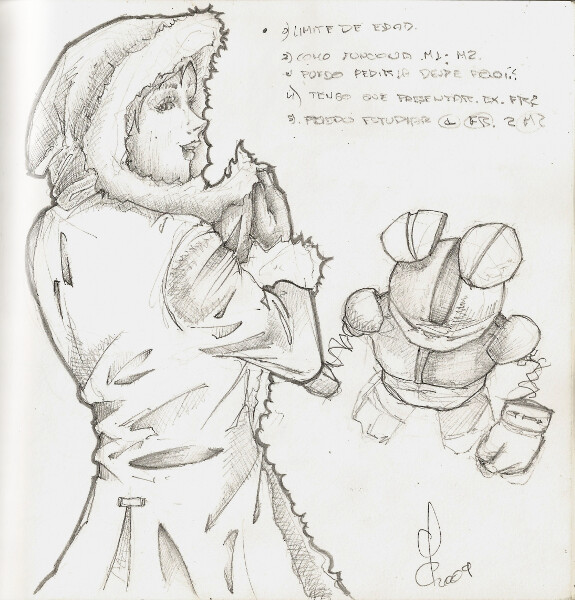 LIMITE DE EDAD.
2) COMO FUNCIONA M1. M2.
PUEDO PEDIRLO DESDE
4) TENGO QUE PRESENTAR. EX.
5. PUEDO ESTUDIAR 1 FR. 2 M2
2009